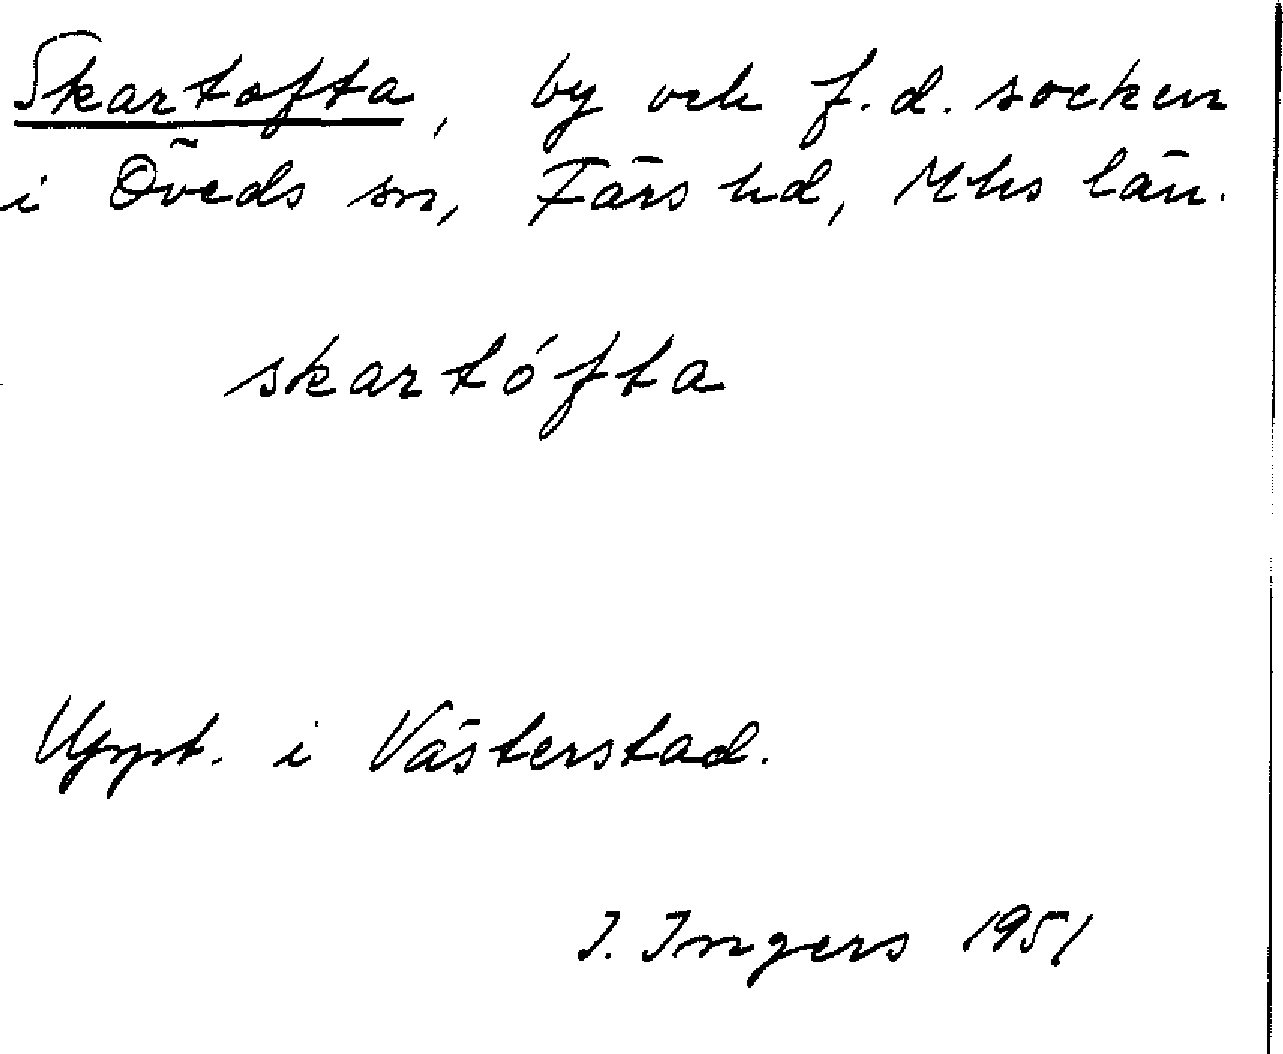 Skartofta, by och f.d. socken
i Öveds sn, Färs hd, Mhs län.
skartófta
Uppt. i Västerstad.
I. Ingers 1951